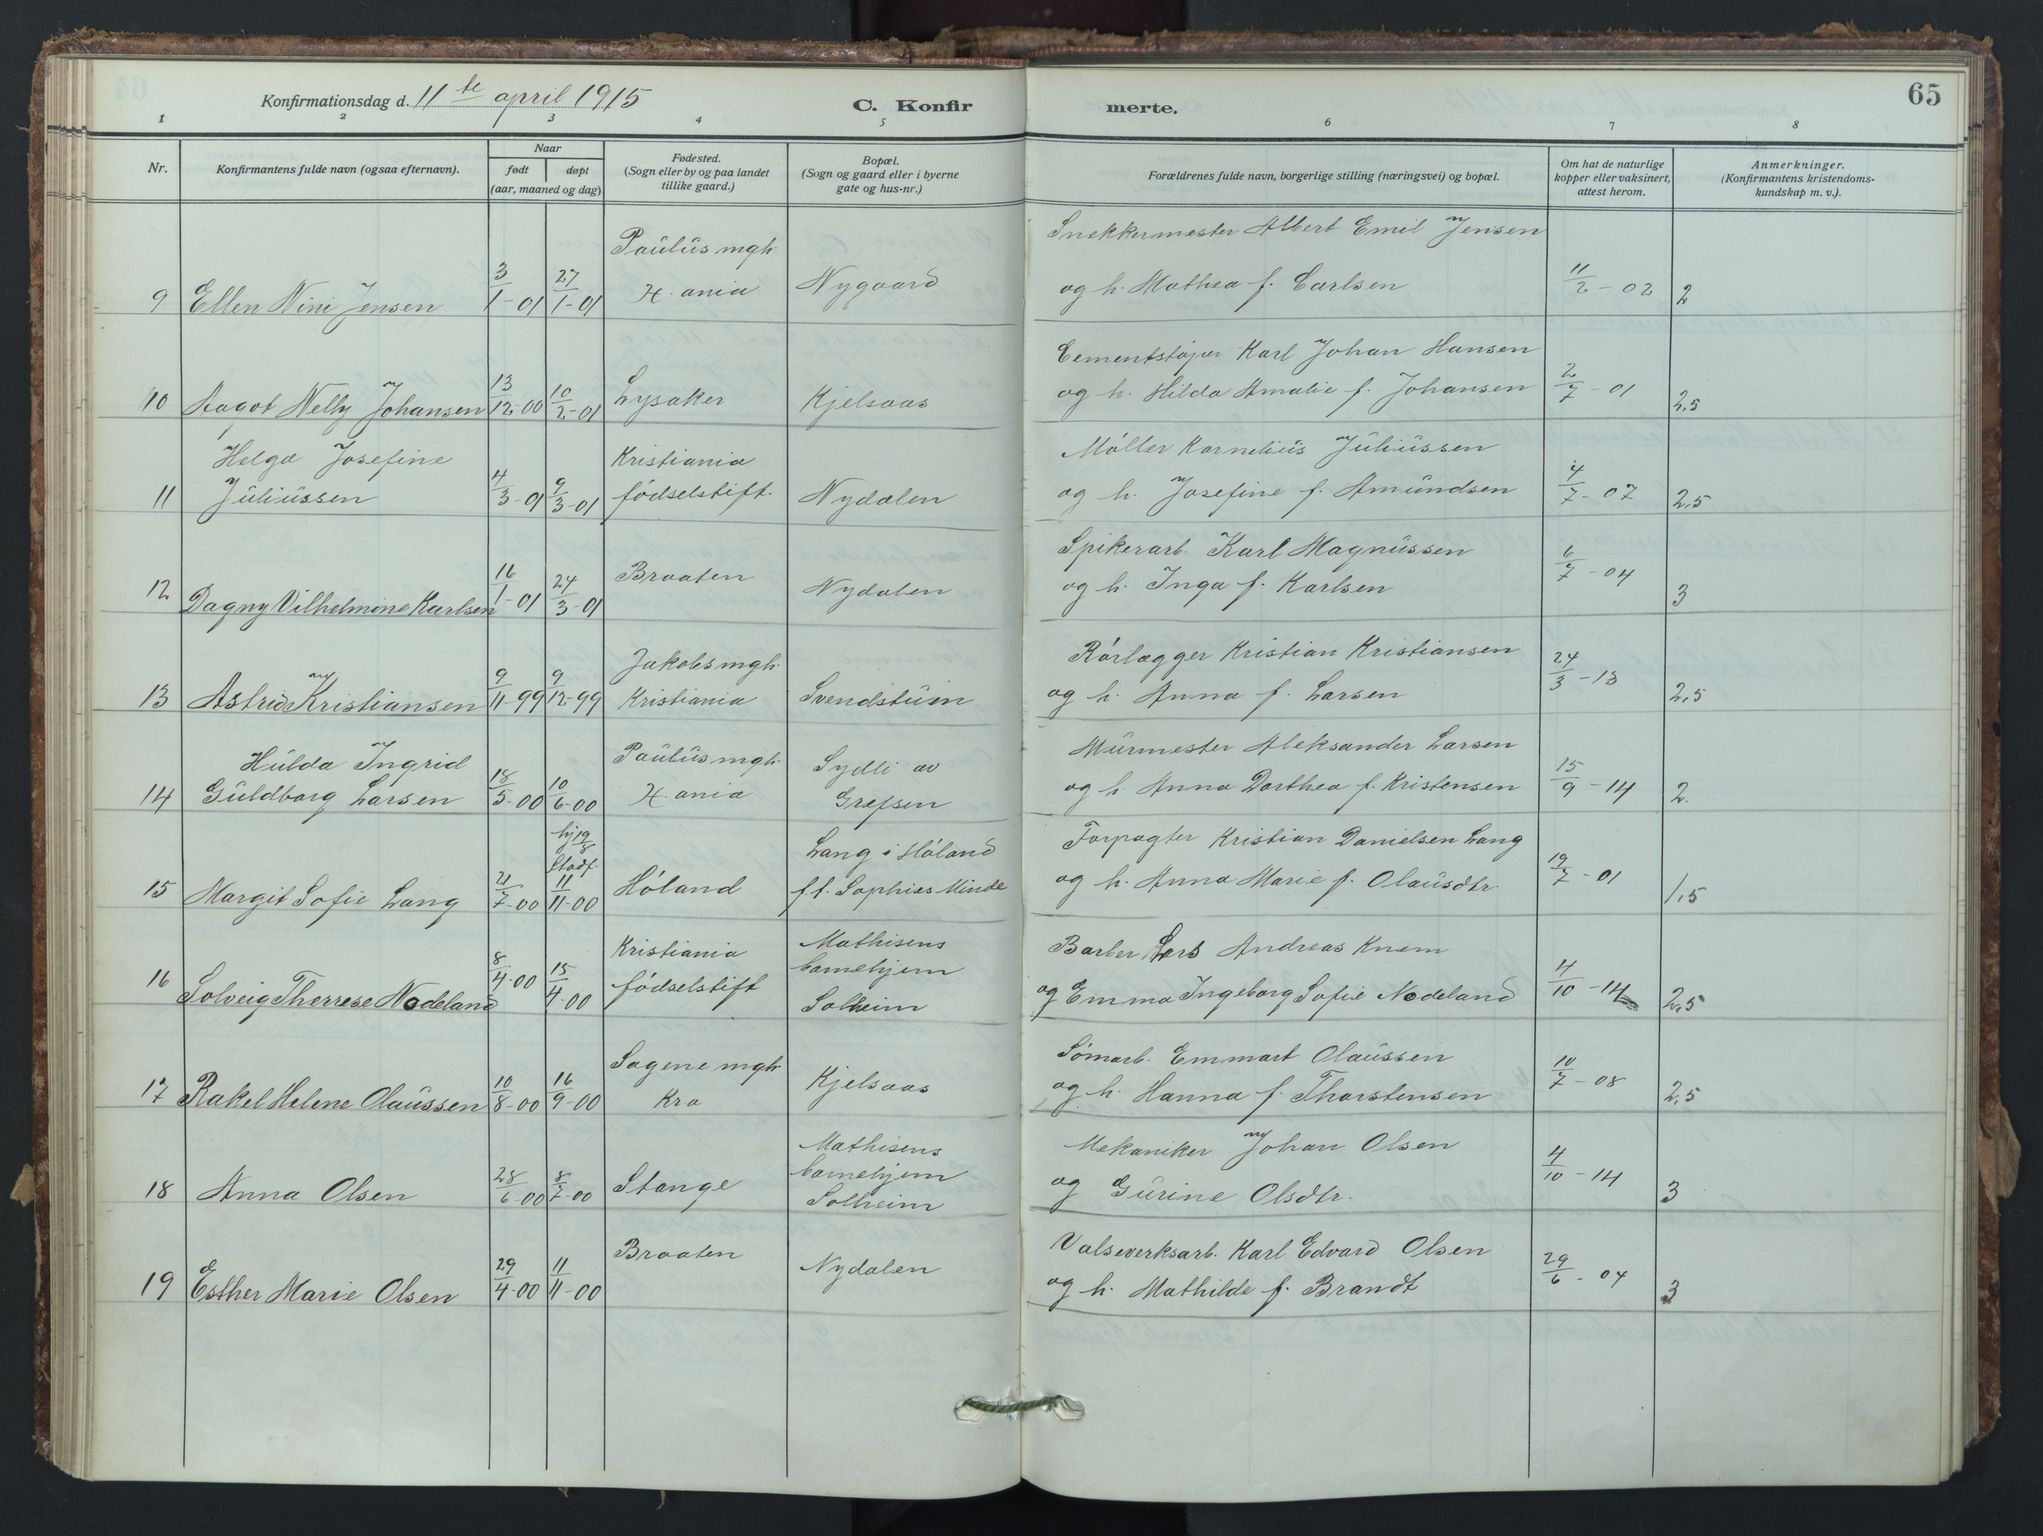 Konfirmationsdag d. 11te april 1915
C. Konfirmerte.
65
1 2 3 4 5 6 7 8
Nr.
Konfirmantens fulde navn (ogsaa efternavn).
Naar
født
døpt
(aar, maaned og dag)
Fødested.
(Sogn eller by og paa landet
tillike gaard.)
Bopæl.
(Sogn og gaard eller i byerne
gate og hus-nr.)
Forældrenes fulde navn, borgerlige stilling (næringsvei) og bopæl.
Om hat de naturlige
kopper eller vaksinert,
attest herom.
Anmerkninger.
(Konfirmantens kristendoms-
kundskap m. v.).
9 Ellen Nini Jensen 3/1-01 27/1-01
Paulus mgh.
X.ania
Nygaard
Snekkermester Albert Emil Jensen
og h. Mathea f. Carlsen
11/2-02 2
10 Aagot Nelly Johansen 13/12-00 10/2-01
Lysaker
Kjelsaas
Cementstøper Karl Johan Hansen
og h. Hilda Amalie f. Johansen
2/7-01 2,5
11 Helga Josefine
Juliussen
4/3-01 9/3-01
Kristiania
fødselstift.
Nydalen
Møller Kornelius Juliussen
og h. Josefine f. Amundsen
4/7-07 2,5
12 Dagny Vilhelmine Karlsen 16/1-01 24/3-01
Braaten
Nydalen
Spikerarb. Karl Magnussen
og h. Inga f. Karlsen
6/7-04 3
13 Astrid Kristiansen 9/11-99 9/12-99
Jakobs mgh.
Kristiania
Svendstuen
Rørlægger Kristian Kristiansen
og h. Anna f. Larsen
24/3-13 2,5
14 Hulda Ingrid
Guldborg Larsen
18/5-00 10/6-00
Paulus mgh.
X.ania
Sydli av
Grefsen
Murmester Aleksander Larsen
og h. Anna Dorthea f. Kristensen
15/9-14 2.
15 Margit Sofie Lang 21/7-00
hj 19/8
Stadf.
11/11-00
Høland
Lang i Høland
f.t. Sophies Minde
Forpagter Kristian Danielsen Lang
og h. Anna Marie f. Olausdtr.
19/7-01 1,5
16 Solveig Therrese Nodeland 8/4-00 15/4-00
Kristiania
fødselstift
Mathisens
barnehjem
Solheim
Barber Lars Andreas Knem
og Emma Ingeborg Sofie Nodeland
4/10-14 2,5
17 Rakel Helene Olaussen 10/8-00 16/9-00
Sagene mgh.
Kra
Kjelsaas
Sømarb. Emmart Olaussen
og h. Hanna f. Thorstensen
10/7-08 2,5
18 Anna Olsen 28/6-00 8/7-00
Stange
Mathisens
barnehjem
Solheim
Mekaniker Johan Olsen
og Gurine Olsdtr.
4/10-14 3
19 Esther Marie Olsen 29/4-00 11/11-00
Braaten
Nydalen
Valseverksarb. Karl Edvard Olsen
og h. Mathilde f. Brandt
29/6-04 3